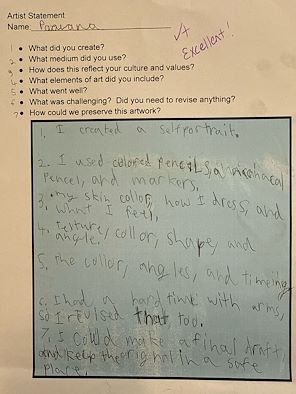 Artist Statement
Name
✓+
Excellent!
1 • What did you create?
2 • What medium did you use?
3 • How does this reflect your culture and values?
4 • What elements of art did you include?
5 • What went well?
6 • What was challenging? Did you need to revise anything?
7 • How could we preserve this artwork?
1. I created a selfportrait.
2. I used colored pencils, a
pencel, and markers.
3. my skin collor, how I dress, and
what I feel,
4. texture, collor, shape, and
angle.
5. the collor, angles, and timeing
6. I had a hard time with arms,
so I revised that, too.
7. I could make a final draft,
and keep the original in a safe
place.